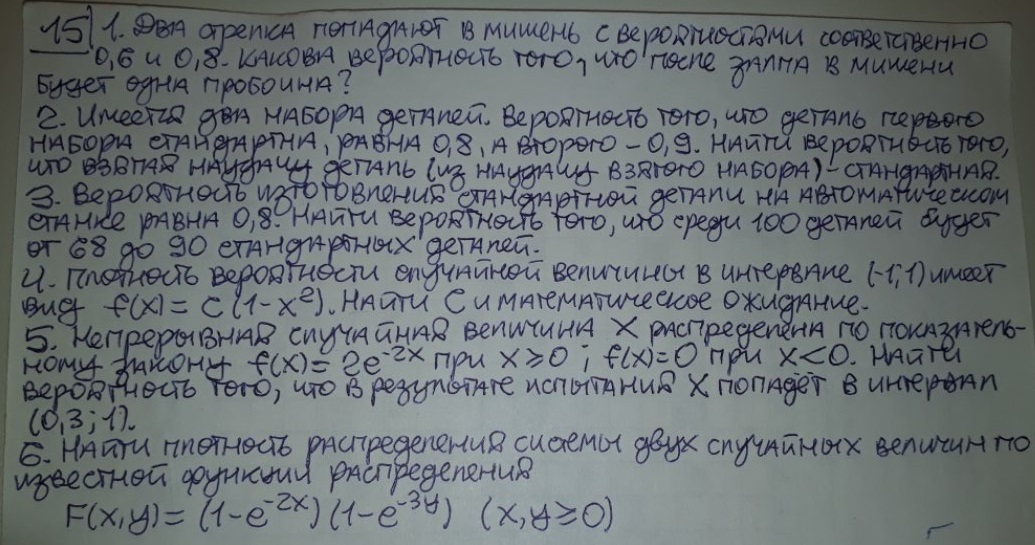 15) 1. Два стрелка попадают в мишень с вероятностями соответственно
0,6 и 0,8. Какова вероятность того, что после залпа в мишени
будет одна пробоина?
2. Имеется два набора деталей. Вероятность того, что деталь первого
набора стандартна, равна 0,8, а второго - 0,9. Найти вероятность того,
что взятая наудачу деталь (из наудачу взятого набора) - стандартная.
3. Вероятность изготовления стандартной детали на автоматическом
станке равна 0,8. Найти вероятность того, что среди 100 деталей будет
от 68 до 90 стандартных деталей.
4. Плотность вероятности случайной величины в интервале (-1; 1) имеет
вид f(x) = C (1-x²). Найти C и математическое ожидание.
5. Непрерывная случайная величина X распределена по показатель-
ному закону f(x) = 2e^{-2x} при x ≥ 0 ; f(x)=0 при x<0. Найти
вероятность того, что в результате испытания X попадёт в интервал
(0,3; 1).
6. Найти плотность распределения системы двух случайных величин по
известной функции распределения
F(x,y) = (1-e^{-2x}) (1-e^{-3y}) (x,y ≥ 0)